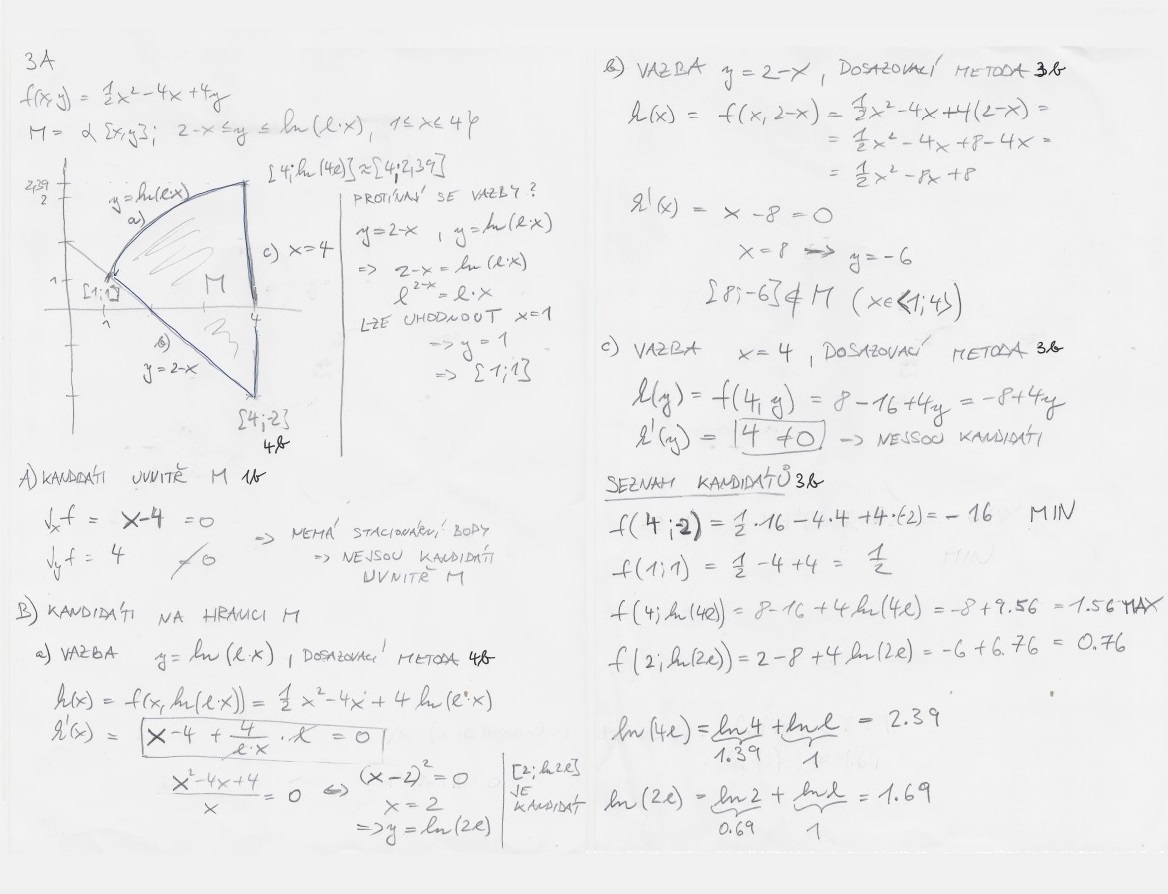 3A
f(x,y) = ½x² - 4x + 4y
M = {[x,y]; 2-x ≤ y ≤ ln(e·x), 1 ≤ x ≤ 4}
[4; ln(4e)] ≈ [4; 2,39]
2,39
2
y = ln(e·x)
a)
c) x = 4
1
[1;1]
M
1
4
b)
y = 2-x
[4;-2]
4b
PROTÍNAJÍ SE VAZBY?
y = 2-x , y = ln(e·x)
=> 2-x = ln(e·x)
e^(2-x) = e·x
LZE UHODNOUT x=1
=> y = 1
=> [1;1]
A) KANDIDÁTI UVNITŘ M 1b
f = x-4 = 0
f = 4 ≠ 0
=> NEMÁ STACIONÁRNÍ BODY
=> NEJSOU KANDIDÁTI
UVNITŘ M
B) KANDIDÁTI NA HRANICI M
a) VAZBA y = ln(e·x) , DOSAZOVACÍ METODA 4b
h(x) = f(x, ln(e·x)) = ½x² - 4x + 4 ln(e·x)
h'(x) = x - 4 + 4/(e·x) · e = 0
(x² - 4x + 4)/x = 0 <=> (x-2)² = 0
x = 2
=> y = ln(2e)
[2; ln2e]
JE
KANDIDÁT
b) VAZBA y = 2-x , DOSAZOVACÍ METODA 3b
h(x) = f(x, 2-x) = ½x² - 4x + 4(2-x) =
= ½x² - 4x + 8 - 4x =
= ½x² - 8x + 8
h'(x) = x - 8 = 0
x = 8 => y = -6
[8;-6] ∉ M (x∈<1;4>)
c) VAZBA x = 4 , DOSAZOVACÍ METODA 3b
h(y) = f(4, y) = 8 - 16 + 4y = -8 + 4y
h'(y) = 4 ≠ 0 -> NEJSOU KANDIDÁTI
SEZNAM KANDIDÁTŮ 3b
f(4;-2) = ½·16 - 4·4 + 4·(-2) = -16 MIN
f(1;1) = ½ - 4 + 4 = ½
f(4; ln(4e)) = 8 - 16 + 4 ln(4e) = -8 + 9.56 = 1.56 MAX
f(2; ln(2e)) = 2 - 8 + 4 ln(2e) = -6 + 6.76 = 0.76
ln(4e) = ln4 + ln e = 2.39
1.39 1
ln(2e) = ln2 + ln e = 1.69
0.69 1